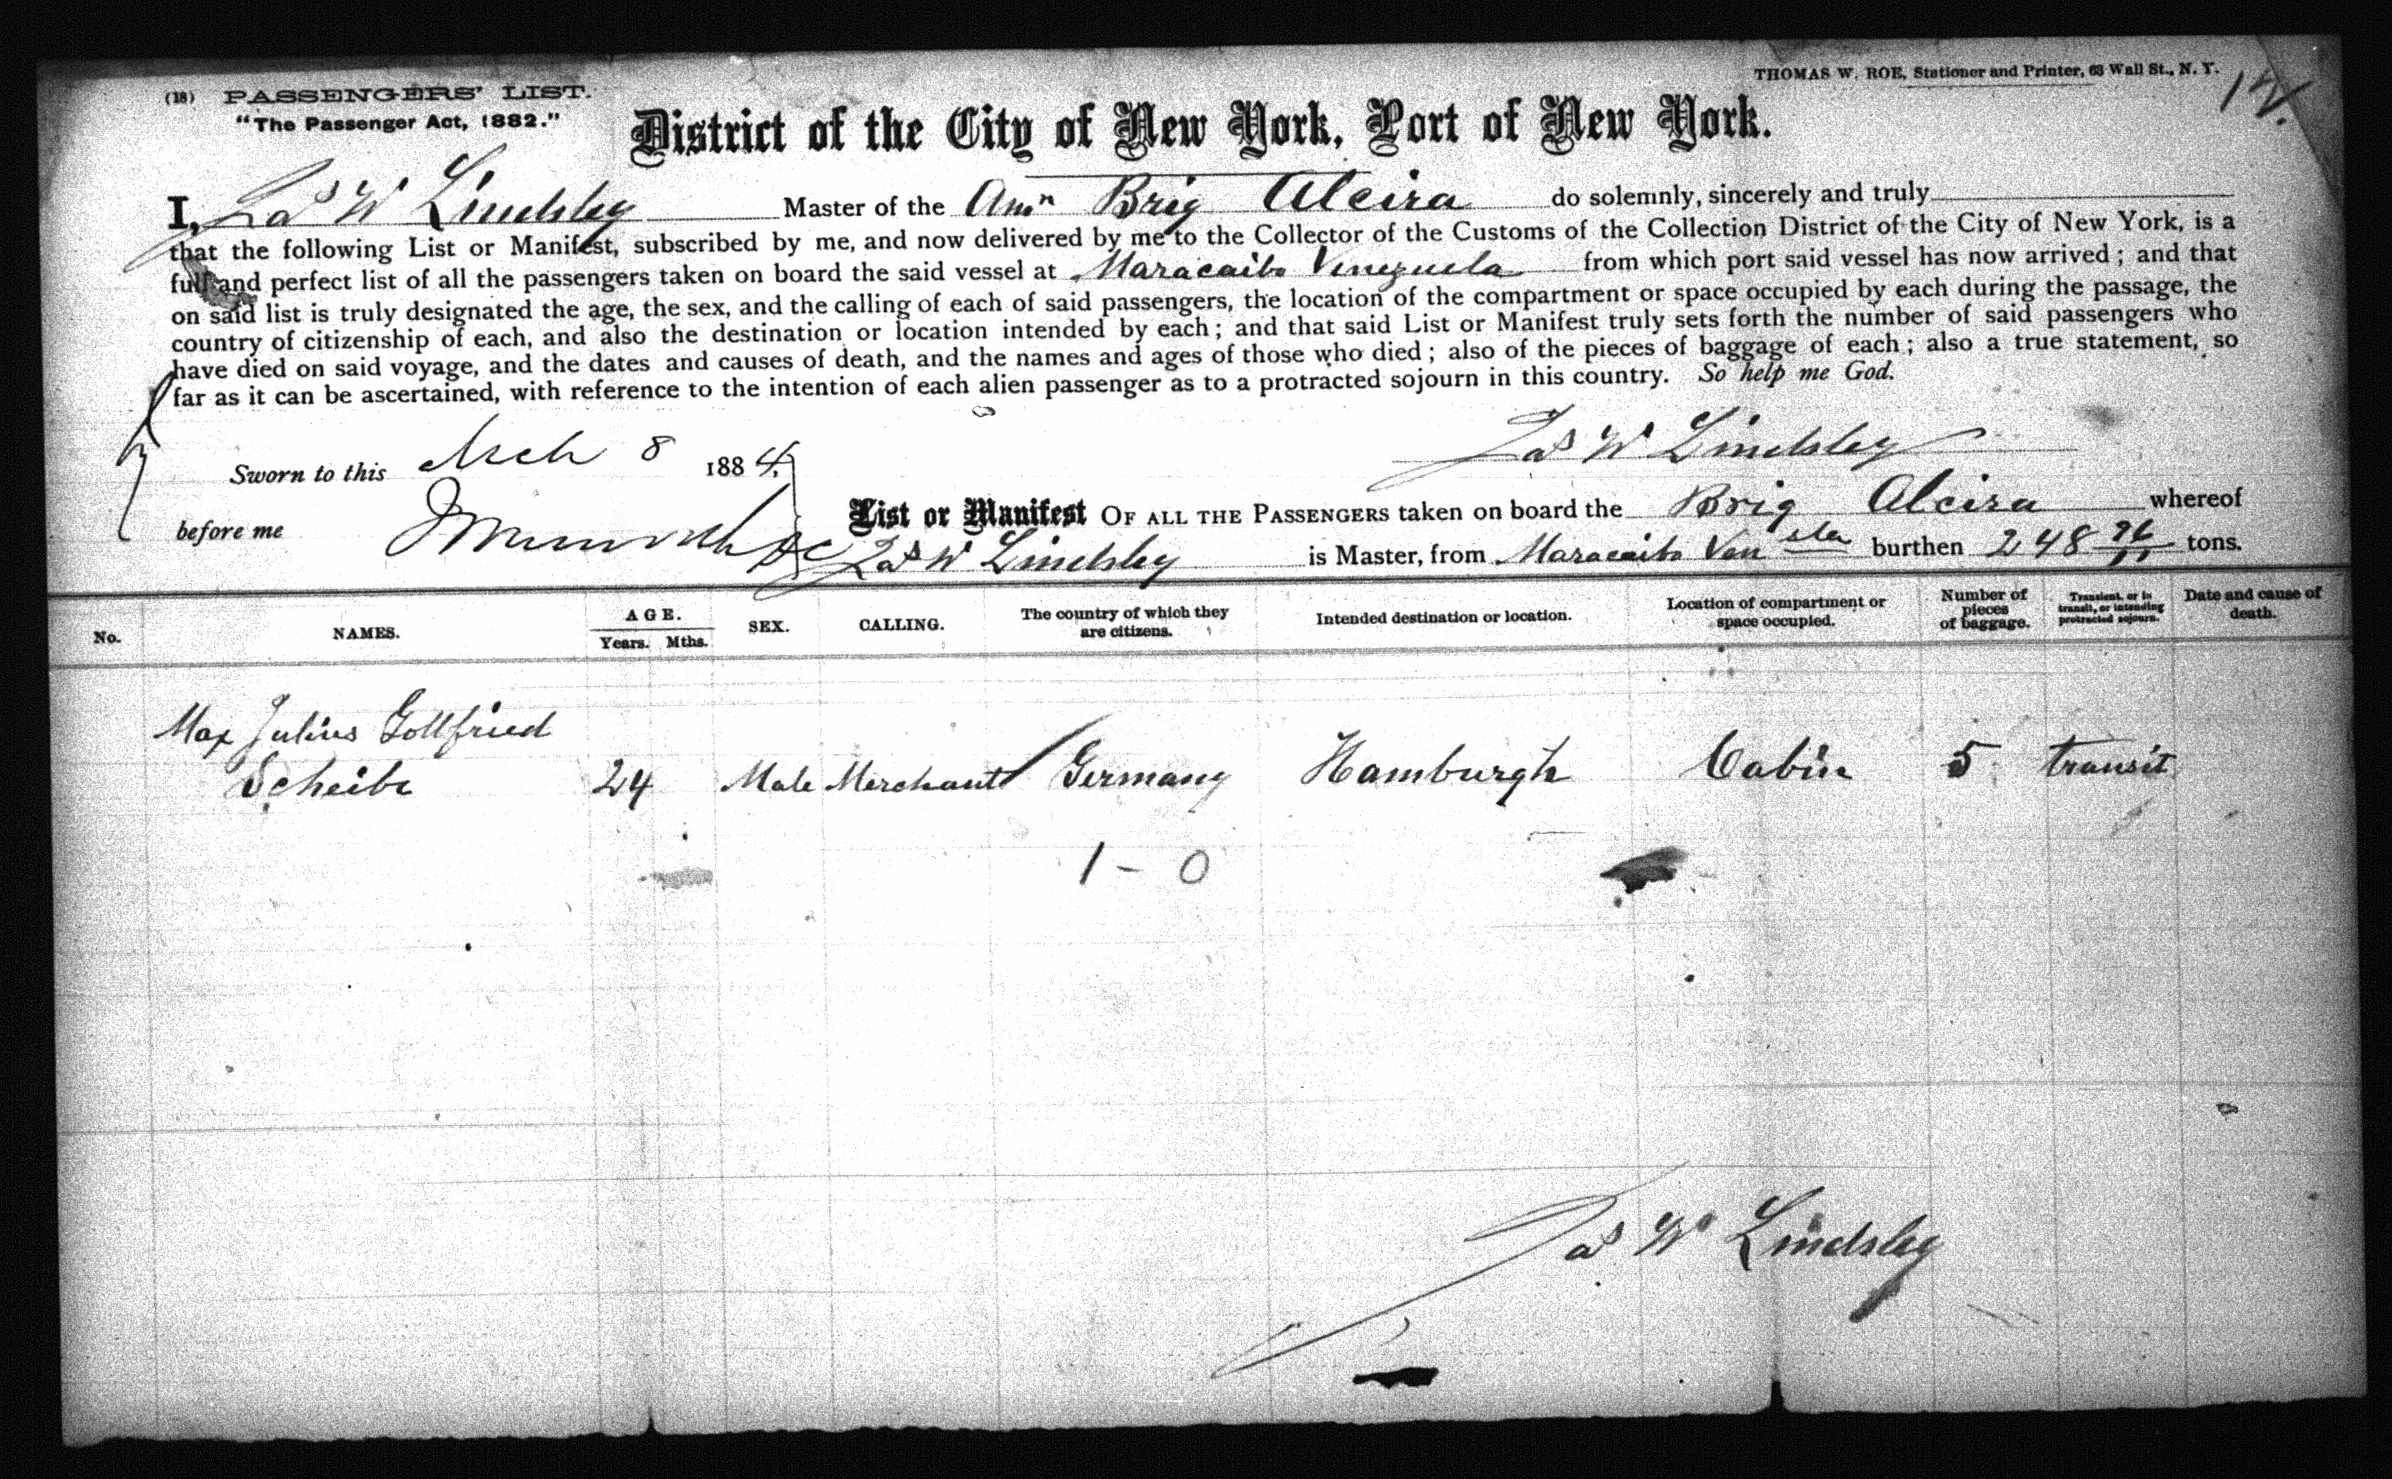 THOMAS W. ROE, Stationer and Printer, 63 Wall St., N. Y.
(18) PASSENGERS' LIST.
12.
"The Passenger Act, 1882."
District of the City of New York, Port of New York.
I, Jas W Lindsley Master of the Amn Brig Alcira do solemnly, sincerely and truly
that the following List or Manifest, subscribed by me, and now delivered by me to the Collector of the Customs of the Collection District of the City of New York, is a
full and perfect list of all the passengers taken on board the said vessel at Maracaibo Venezuela from which port said vessel has now arrived; and that
on said list is truly designated the age, the sex, and the calling of each of said passengers, the location of the compartment or space occupied by each during the passage, the
country of citizenship of each, and also the destination or location intended by each; and that said List or Manifest truly sets forth the number of said passengers who
have died on said voyage, and the dates and causes of death, and the names and ages of those who died; also of the pieces of baggage of each; also a true statement, so
far as it can be ascertained, with reference to the intention of each alien passenger as to a protracted sojourn in this country. So help me God.
Jas W Lindsley
Sworn to this Mch 8 1884
before me
List or Manifest OF ALL THE PASSENGERS taken on board the Brig Alcira whereof
Jas W Lindsley is Master, from Maracaibo Ven burthen 248 tons.
No. NAMES. AGE. Years. Mths. SEX. CALLING. The country of which they are citizens. Intended destination or location. Location of compartment or space occupied. Number of pieces of baggage. Transient, or in transit, or intending protracted sojourn. Date and cause of death.
Max Julius Gottfried
Scheibe 24 Male Merchant Germany Hamburgh Cabin 5 transit
1 - 0
Jas W Lindsley